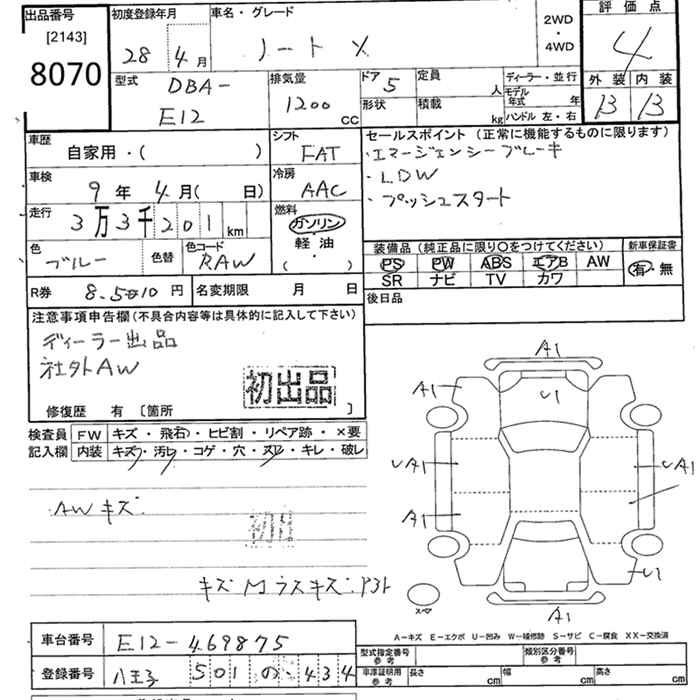 出品番号
[2143]
8070
初度登録年月
28 4月
車名・グレード
ノート X
2WD
・
4WD
評価点
4
型式
DBA-
E12
排気量
1200 cc
ドア 5
定員 人
形状
積載 kg
ディーラー・並行
モデル年式 年
ハンドル 左・右
外装 内装
B B
車歴
自家用・( )
車検
9年 4月( 日)
走行
3万3千201km
色
ブルー
色替
色コード
RAW
シフト
FAT
冷房
AAC
燃料
ガソリン
・
軽油
・
( )
セールスポイント (正常に機能するものに限ります)
・エマージェンシーブレーキ
・LDW
・プッシュスタート
装備品 (純正品に限り○をつけてください)
新車保証書
PS PW ABS エアB AW
有・無
SR ナビ TV カワ
後日品
R券 8.510円
名変期限 月 日
注意事項申告欄(不具合内容等は具体的に記入して下さい)
ディーラー出品
社外AW
初出品
修復歴 有 [箇所 ]
検査員記入欄
FW キズ・飛石・ヒビ割・リペア跡・×要
内装 キズ・汚レ・コゲ・穴・スレ・キレ・破レ
AWキズ
A1
A1
U1
UA1
UA1
A1
U1
A1
スペア
A-キズ E-エクボ U-凹み W-補修跡 S-サビ C-腐食 XX-交換済
車台番号 E12-469875
登録番号 八王子 501 の 434
型式指定番号 参考
類別区分番号 参考
車庫証明用 参考
長さ cm 幅 cm 高さ cm